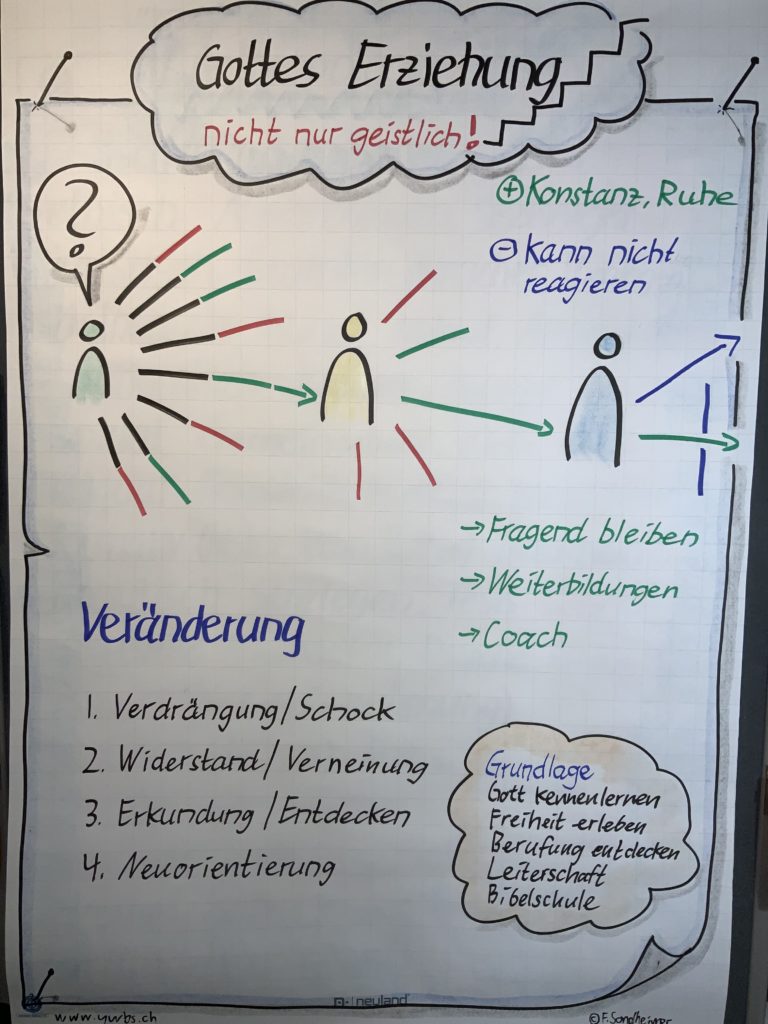 Gottes Erziehung
nicht nur geistlich!
?
⊕ Konstanz, Ruhe
⊖ kann nicht
reagieren
→ Fragend bleiben
→ Weiterbildungen
→ Coach
Veränderung
1. Verdrängung/Schock
2. Widerstand/Verneinung
3. Erkundung/Entdecken
4. Neuorientierung
Grundlage
Gott kennenlernen
Freiheit erleben
Berufung entdecken
Leiterschaft
Bibelschule
neuland
www.ywbs.ch
© F. Sondheimer